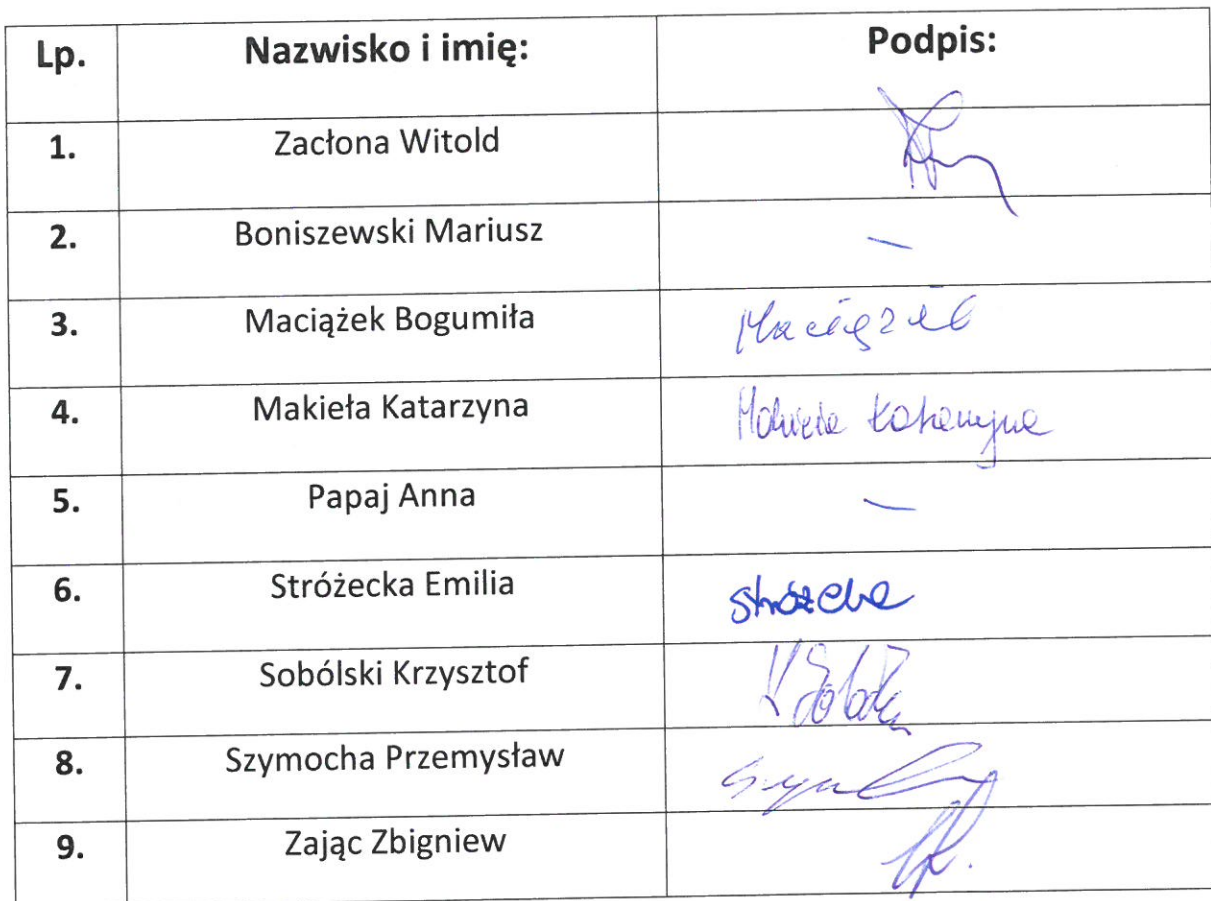 Lp. Nazwisko i imię: Podpis:
1. Zacłona Witold
2. Boniszewski Mariusz —
3. Maciążek Bogumiła Maciążek
4. Makieła Katarzyna Makieła Katarzyna
5. Papaj Anna —
6. Stróżecka Emilia
7. Sobólski Krzysztof
8. Szymocha Przemysław
9. Zając Zbigniew